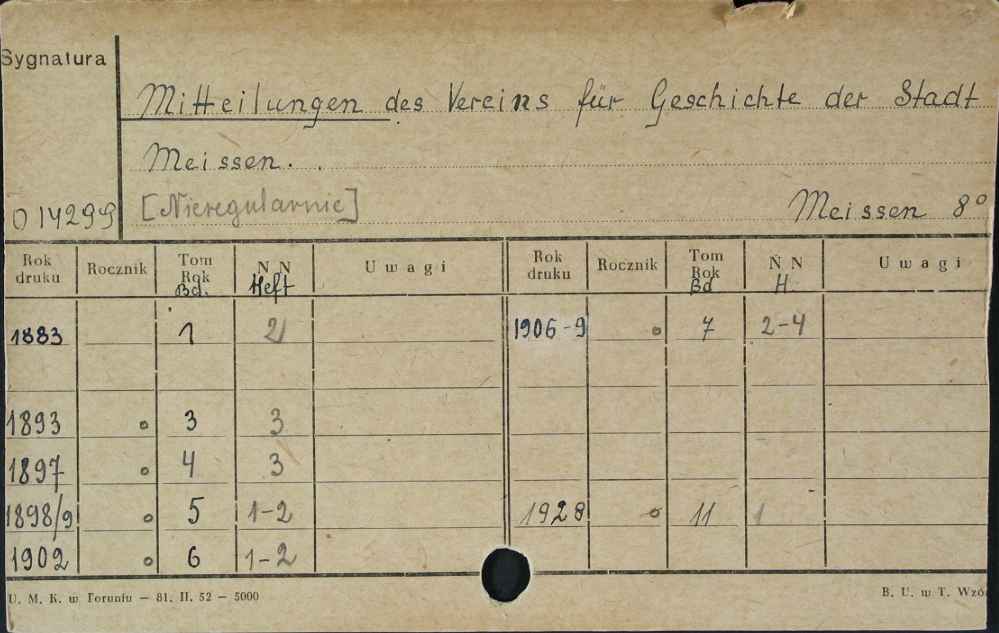 Sygnatura
Mitteilungen des Vereins für Geschichte der Stadt
Meissen.
O 14299 [Nieregularnie] Meissen 8°
Rok druku Rocznik Tom Rok Bd. N N Heft Uwagi Rok druku Rocznik Tom Rok Bd N N H. Uwagi
1883 1 2 1906-9 o 7 2-4
1893 o 3 3
1897 o 4 3
1898/9 o 5 1-2 1928 o 11 1
1902 o 6 1-2
U. M. K. w Toruniu — 81. II. 52 — 5000 B. U. w T. Wzó